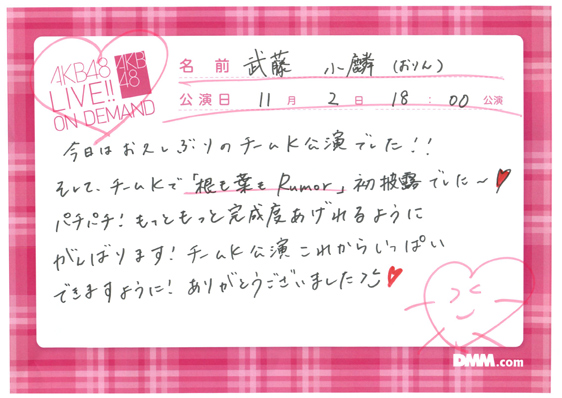 AKB48
LIVE!!
ON DEMAND
AKB
48
名前 武藤 小麟 (おりん)
公演日 11月 2日 18:00 公演
今日はお久しぶりのチームK公演でした!!
そして、チームKで「根も葉もRumor」初披露でした〜
パチパチ!もっともっと完成度あげれるように
がんばります!チームK公演これからいっぱい
できますように!ありがとうございました
DMM.com